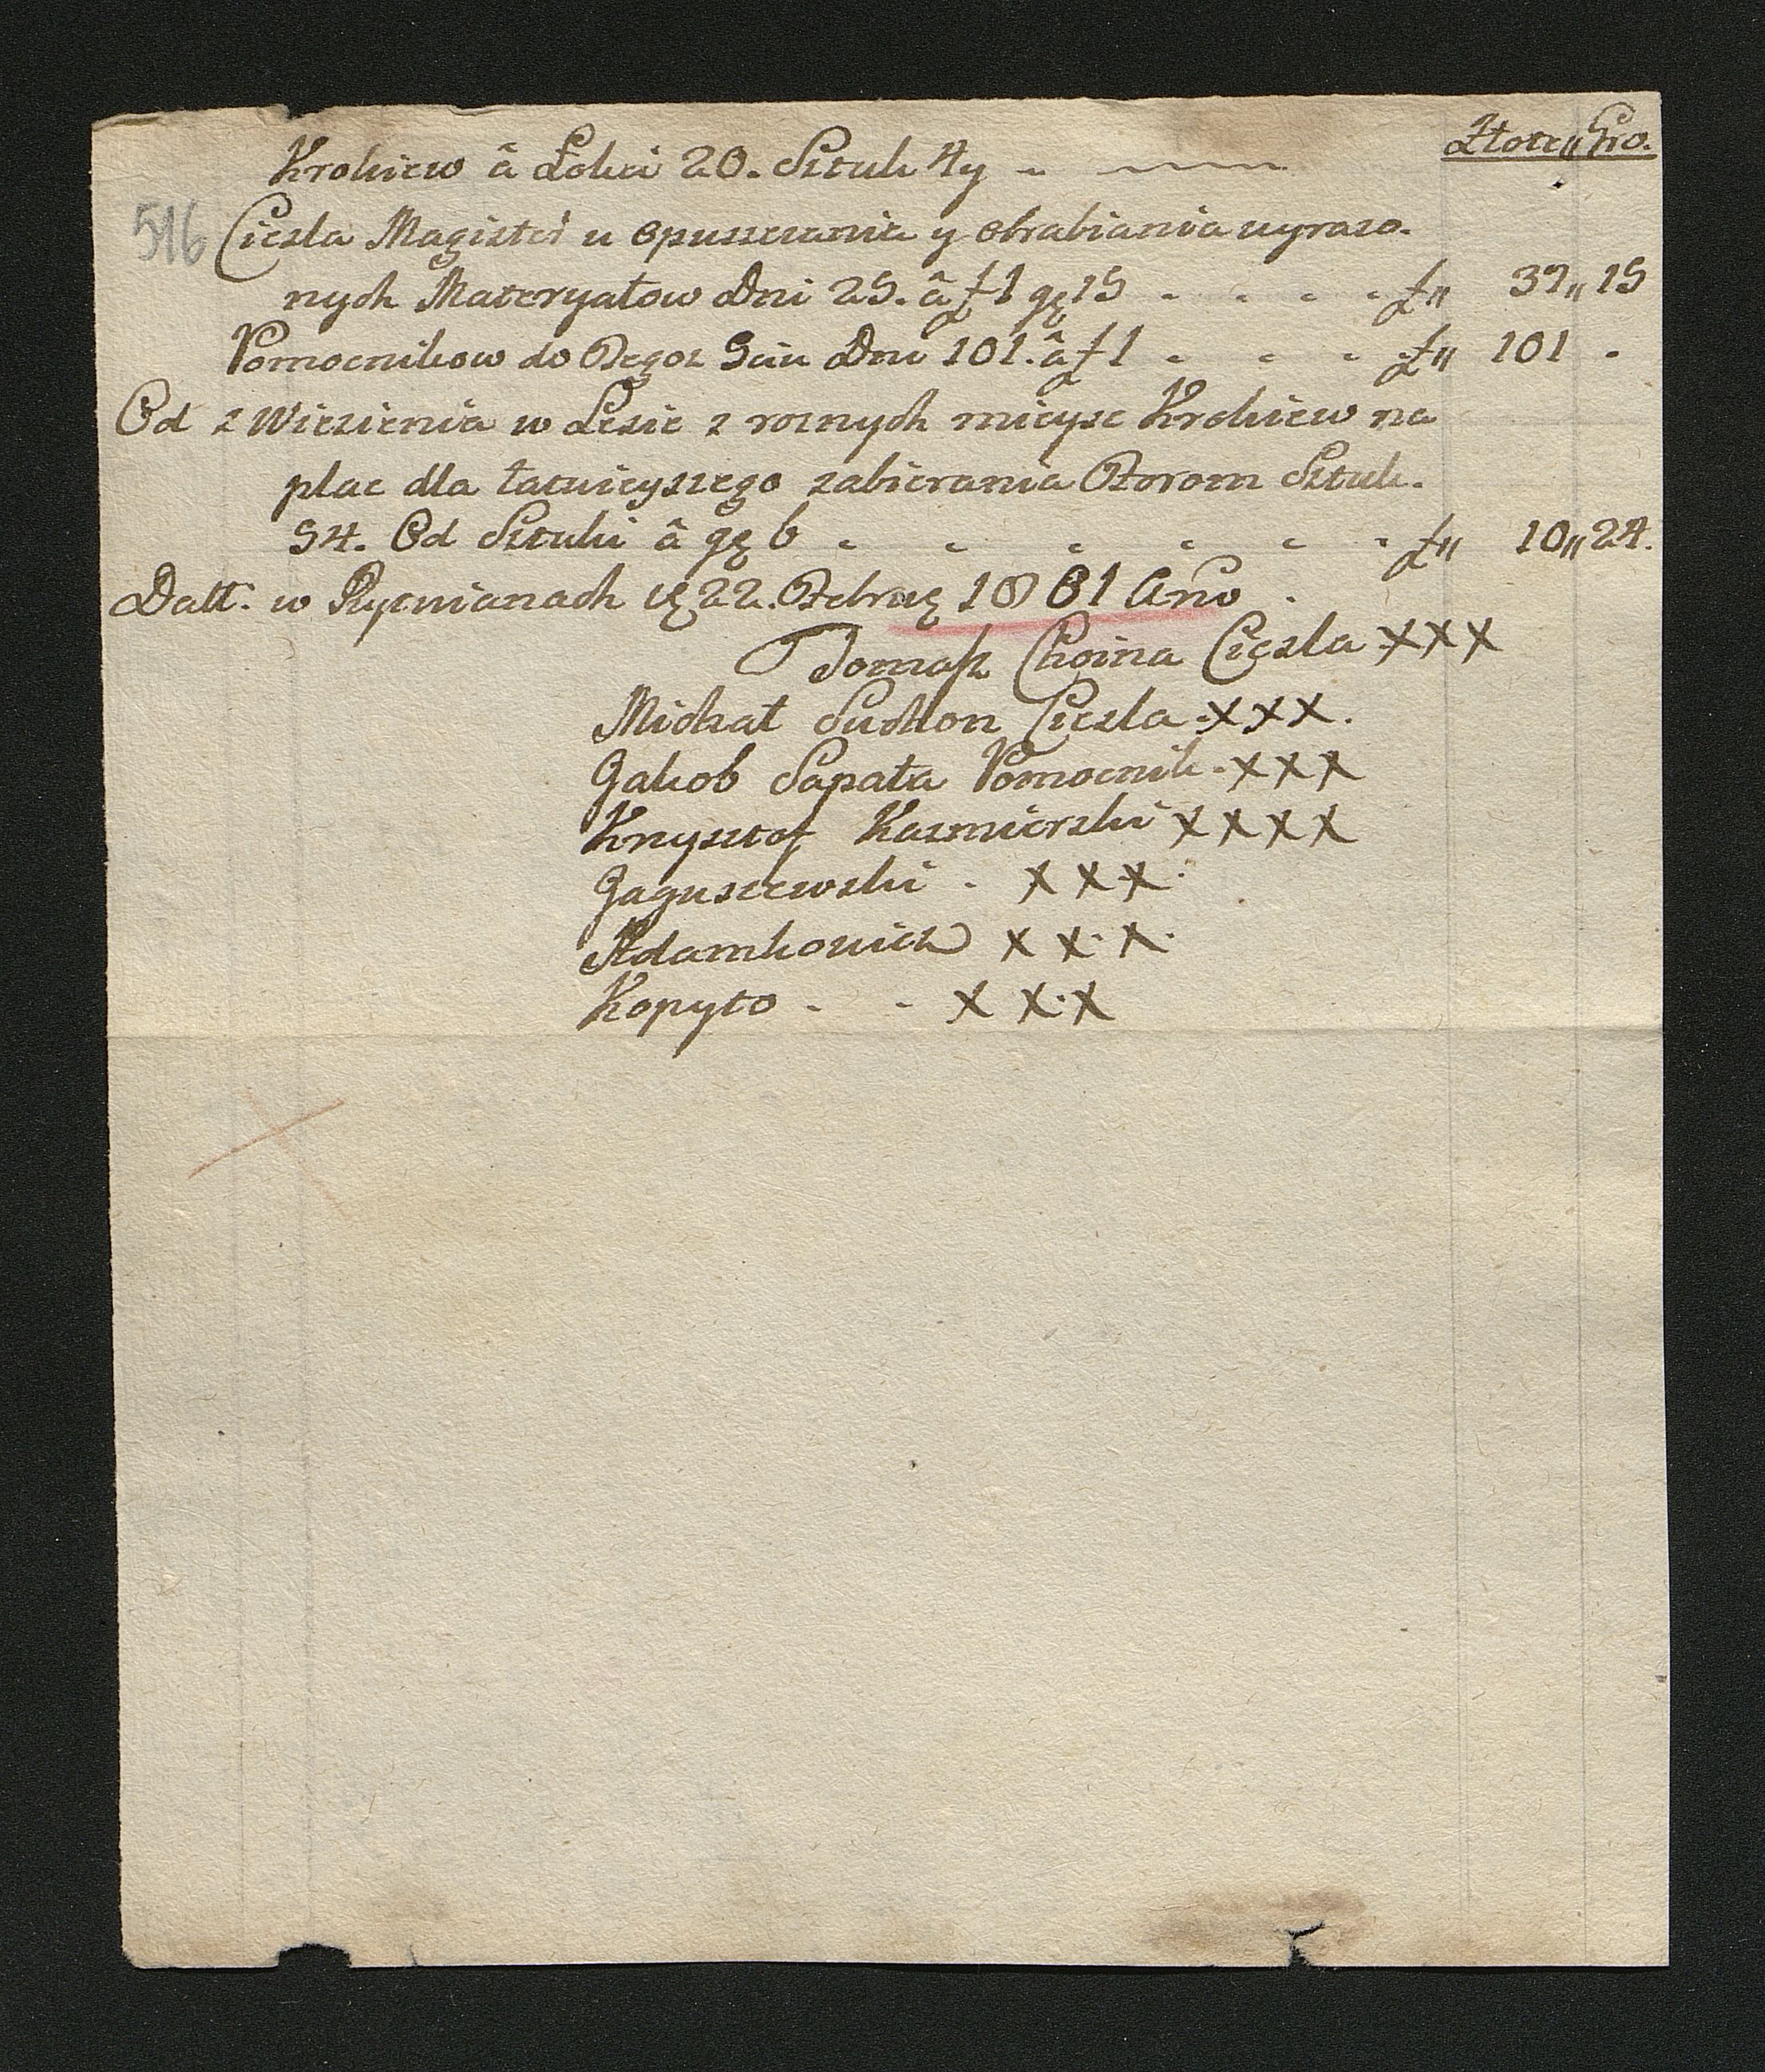 Złote,, Gro.
Krokiew â Łokci 20. Sztuk 4y
516
Ciesla Magister u opuszczania y obrabiania wyrazo-
nych Materyałow Dni 25. â zł 1 gę 15 zł,, 37,, 15
Pomocnikow do Tegoz Dni 101. â zł 1 zł,, 101
Od zWiezienia w Lesie z roznych mieysc Krokiew na
plac dla łatwieyszego zabierania Forom Sztuk.
54. Od Sztuki â gę 6 zł,, 10,, 24.
Datt. w Rycnianach 22. Febru 1801 Año
Tomasz Choina Cięsla xxx
Michał Suchon Ciesla xxx.
Jakob Sapała Pomocnik xxx
Krzysztof Kazmierski xxxx
Jaguszewski xxx.
Adamkowicz x x. x.
Kopyto - - x x.x